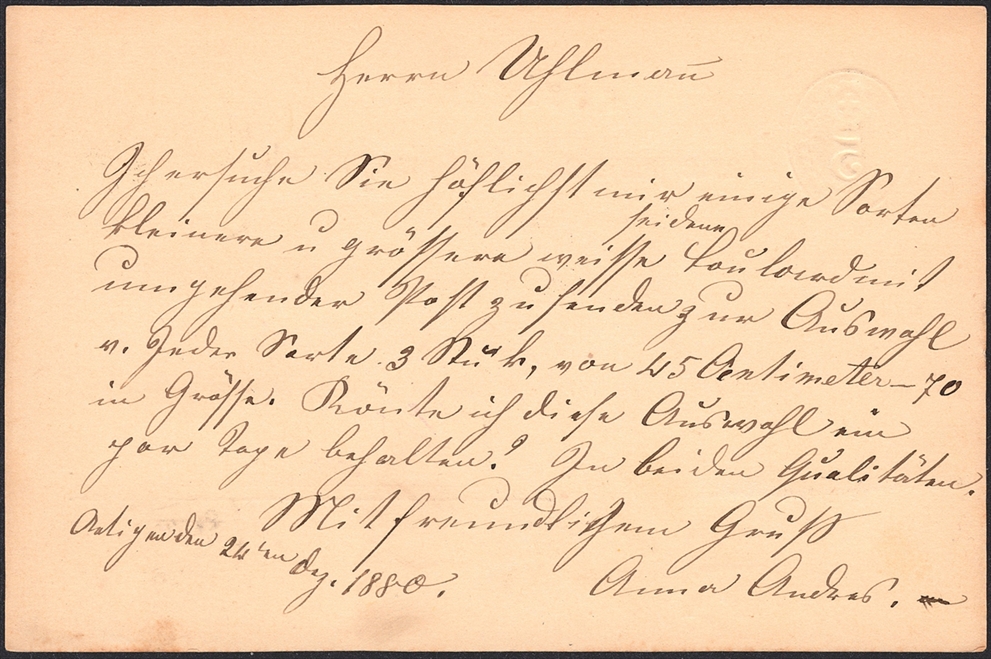 Herrn Uhlmañ
Ich ersuche Sie höflichst mir einige Sorten
seidene
kleinere u grössere weisse Foulard mit
umgehender Post zu senden zur Auswahl
v. Jeder Sorte 3 Stück, von 45 Centimeter – 70
in Grösse. Könte ich diese Auswahl ein
par Tage behalten? In beiden Qualitäten.
Mit freundlichem Gruss
den 24ten Dez. 1880.
Anna Andres.